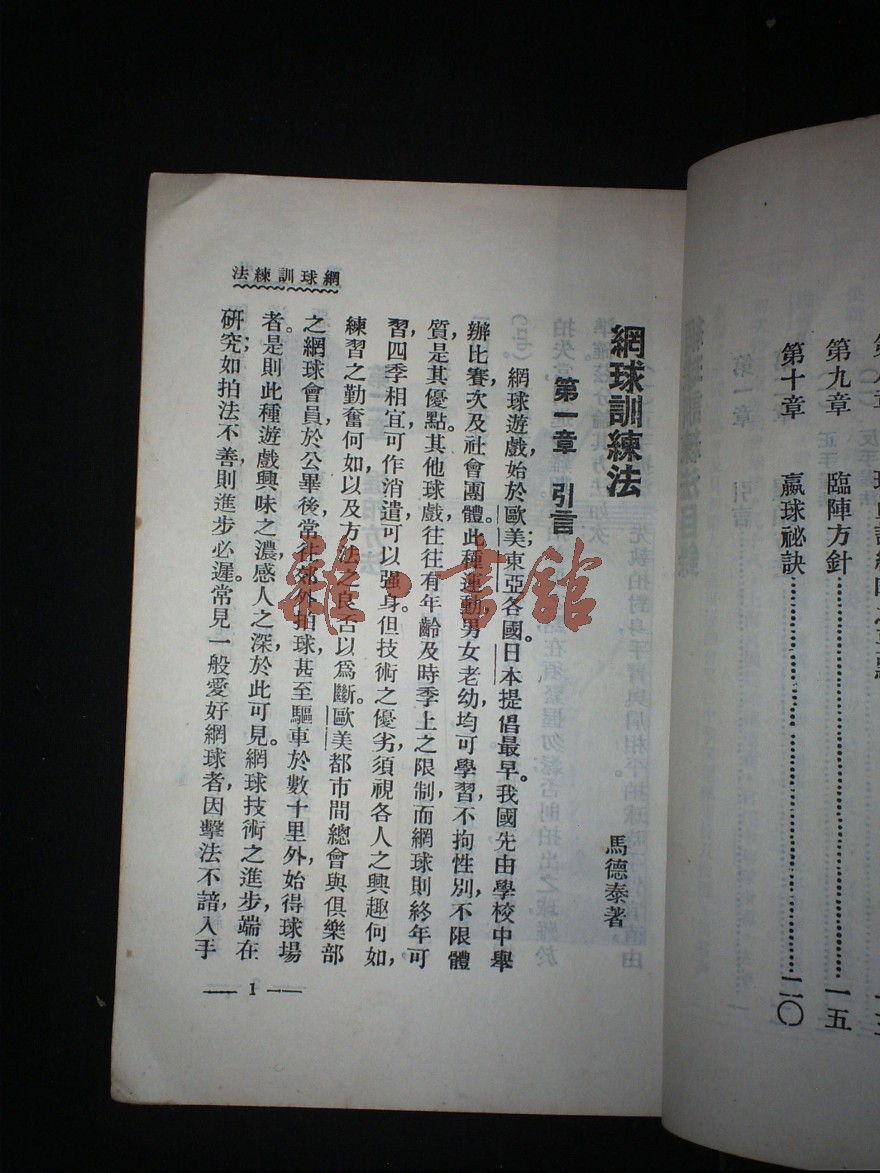 第九章　臨陣方針……一五
第十章　贏球祕訣……二〇
網球訓練法
網球訓練法
馬德泰著
第一章　引言
網球遊戲始於歐美東亞各國。日本提倡最早。我國先由學校中舉
辦比賽，次及社會團體。此種運動，男女老幼，均可學習，不拘性別，不限體
質，是其優點。其他球戲，往往有年齡及時季上之限制，而網球則終年可
習，四季相宜，可作消遣，可以强身。但技術之優劣，須視各人之興趣何如，
練習之勤奮何如，以及方法之良否以爲斷。歐美都市間總會與俱樂部
之網球會員，於公畢後，常往郊外拍球，甚至驅車於數十里外，始得球場
者。是則此種遊戲興味之濃，感人之深，於此可見。網球技術之進步，端在
研究；如拍法不善，則進步必遲。常見一般愛好網球者，因擊法不諳，入手
— 1 —
雜·書館